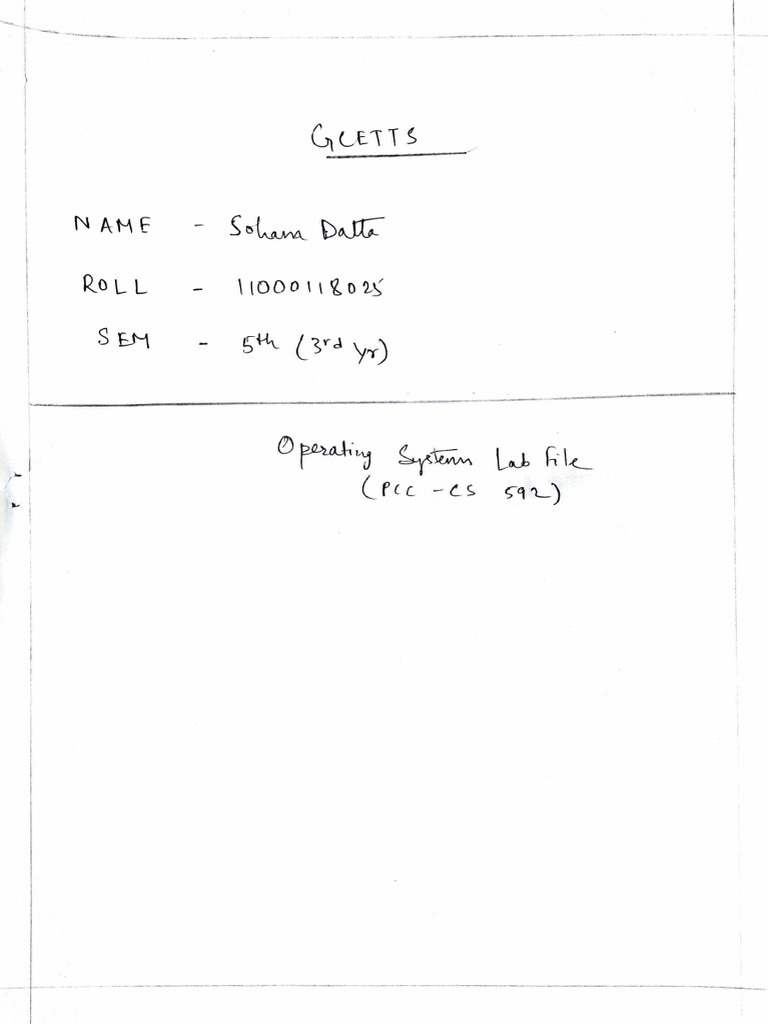 GCETTS
NAME - Sohana Datta
ROLL - 11000118025
SEM - 5th (3rd yr)
Operating System Lab File
(PCC - CS 592)